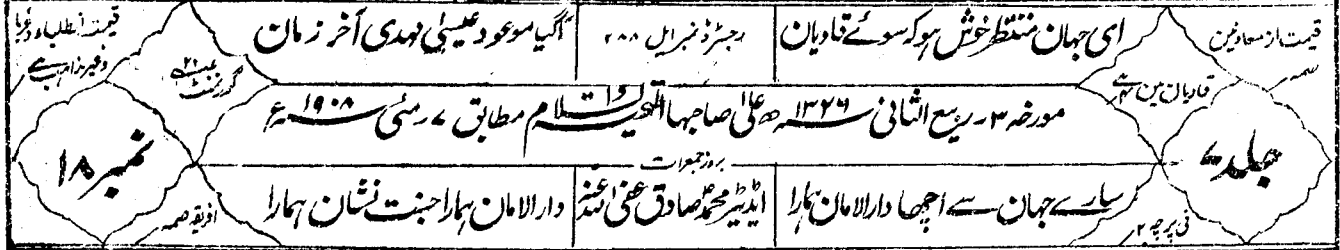 قیمت از معاونین
ای جہان منتظر خوش ہو کہ سوئے قادیان
رجسٹرڈ نمبر ایل ۲۸۸
آگیا موعود عیسیٰ مہدی آخر زمان
قیمت از طلباء و غربا
قادیان مین
گورنمنٹ
جلد ۷
مورخہ ۳ ربیع الثانی ۱۳۲۶ھ علیٰ صاحبہا التحیۃ والسلام مطابق ۷ مئی ۱۹۰۸ء
نمبر ۱۸
بروز جمعرات
سارے جہان سے اچھا دارالامان ہمارا
ایڈیٹر محمد صادق عفی اللہ عنہ
دارالامان ہمارا جنت نشان ہمارا
فی پرچہ ۲
افریقہ